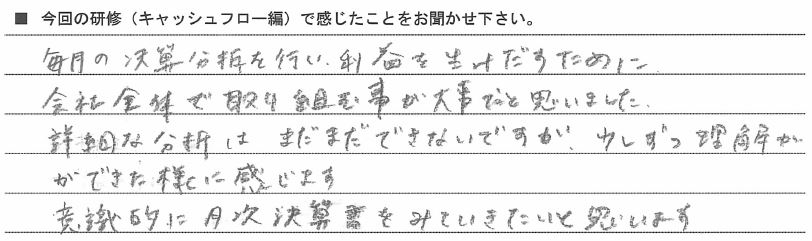 ■ 今回の研修（キャッシュフロー編）で感じたことをお聞かせ下さい。
毎月の決算分析を行い、利益を生みだすために
会社全体で取り組む事が大事だと思いました。
詳細な分析はまだまだできないですが、少しずつ理解が
ができた様に感じます
意識的に月次決算書をみていきたいと思います